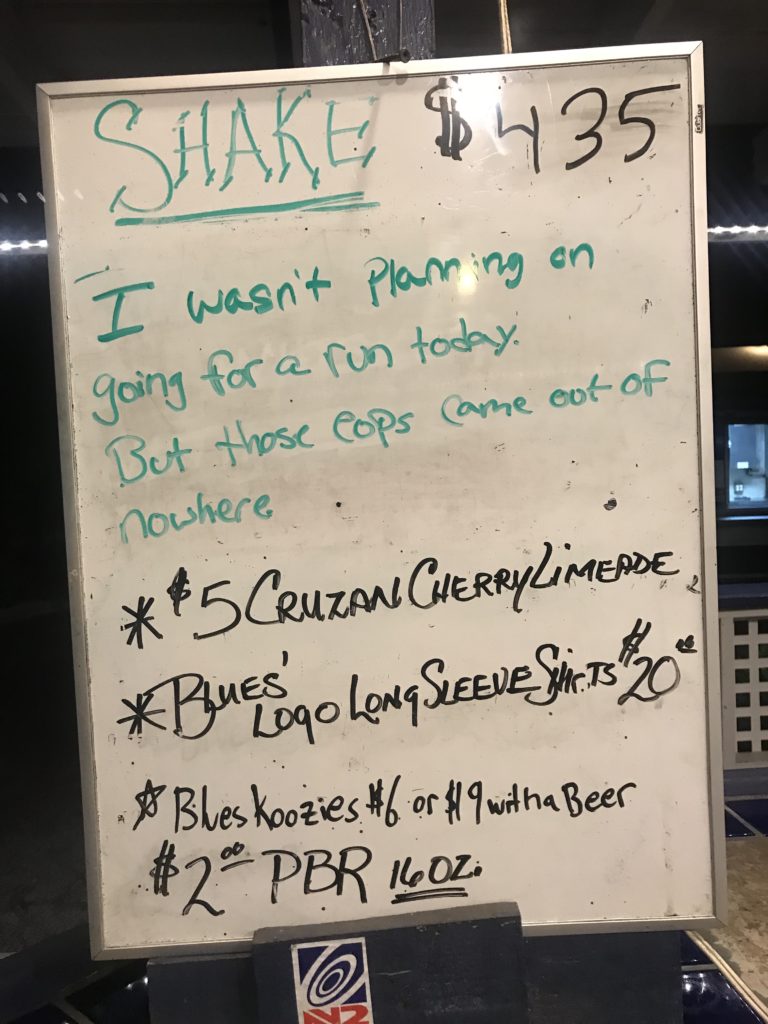 SHAKE $435
I wasn't planning on
going for a run today.
But those cops came out of
nowhere
* $5 CRUZAN CHERRY LIMEADE
* BLUES' LOGO LONG SLEEVE SHIRTS $20.00
☆ Blues Koozies $6 or $9 with a Beer
$2.00 PBR 16 OZ.